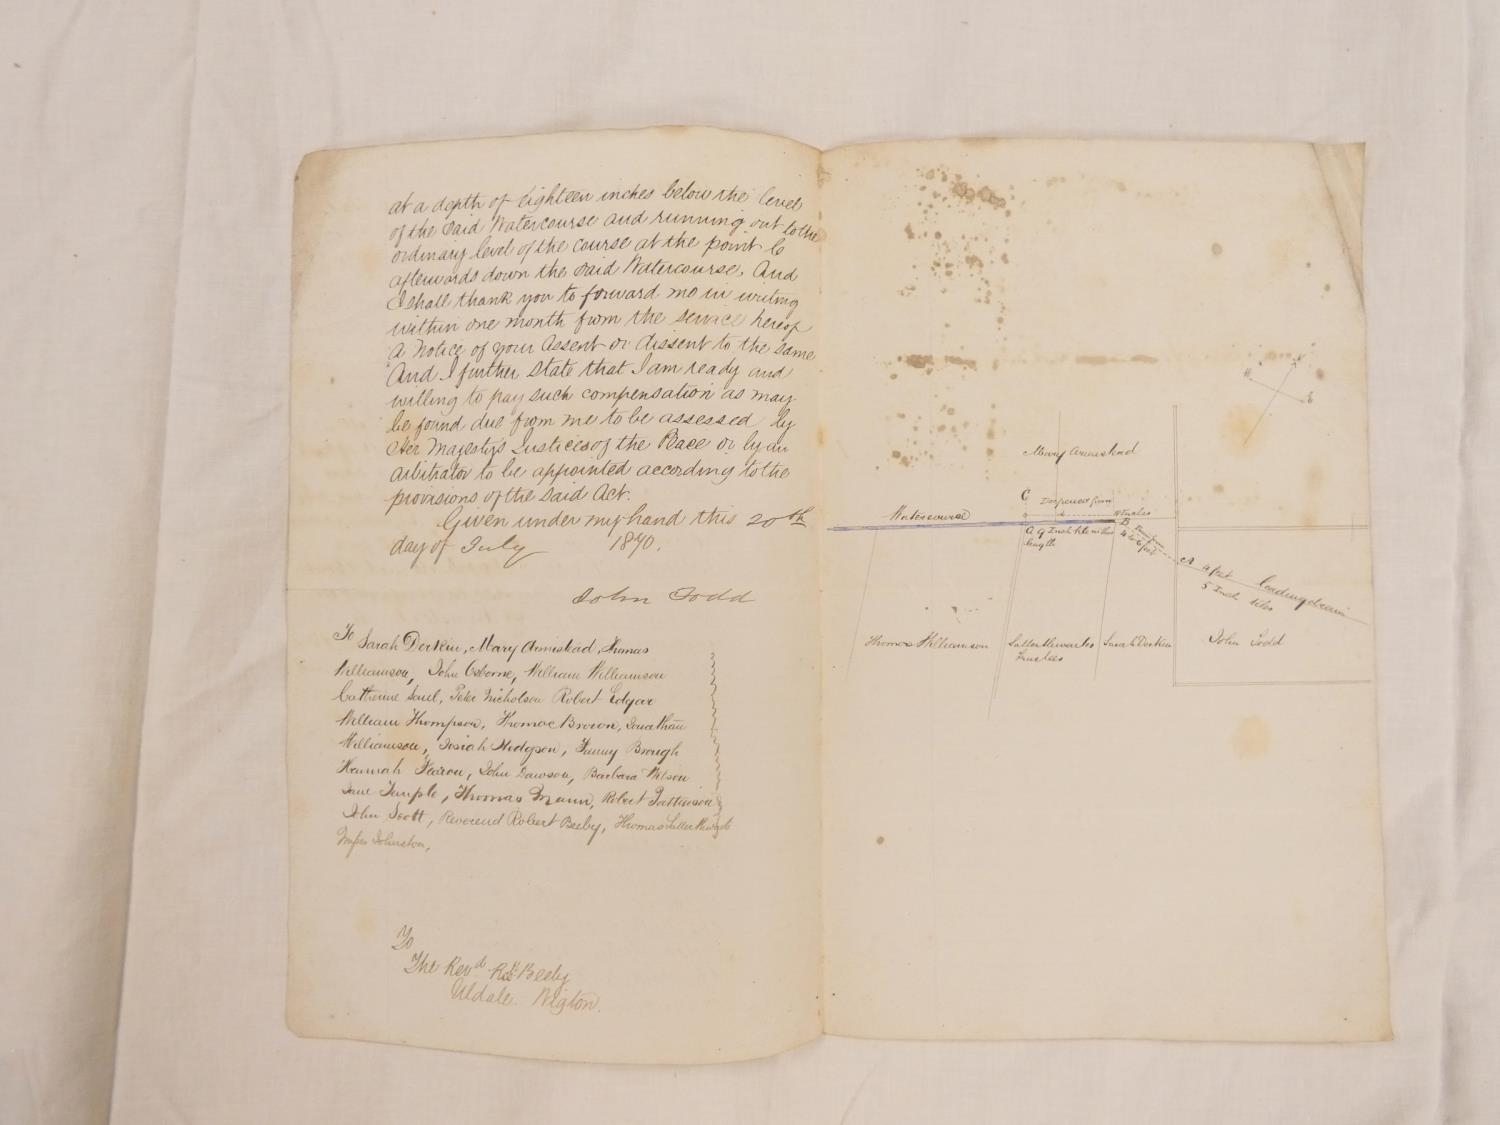 at a depth of Eighteen inches below the level
of the said Watercourse and running out to the
ordinary level of the course at the point C
afterwards down the said Watercourse, And
I shall thank you to forward me in writing
within one month from the service hereof
a Notice of your Assent or dissent to the same
And I further state that I am ready and
willing to pay such compensation as may
be found due from me to be assessed by
Her Majesty's Justices of the Peace or by an
arbitrator to be appointed according to the
provisions of the said Act.
Given under my hand this 20th
day of July 1870.
John Todd
To Sarah Dorkin, Mary Armistead, Thomas
Williamson, John Osborne, William Williamson
Catherine Saul, Peter Nicholson Robert Edgar
William Thompson, Thomas Brown, Jonathan
Williamson, Josiah Hodgson, Fanny Brough
Hannah Pearon, John Dawson, Barbara Wilson
Jane Temple, Thomas Mann, Robert Pattinson
John Scott, Reverend Robert Beeby, Thomas Satterthwaite
Johnston,
To
The Revd Robt Beeby
Uldale. Wigton.
Mary Armistead
C Deepened from
Watercourse
B
A 9 Inch tile in this
length
A 4 feet leading drain
5 Inch tiles
Thomas Williamson
Satterthwaites
Trustees
Sarah Dorkin
John Todd